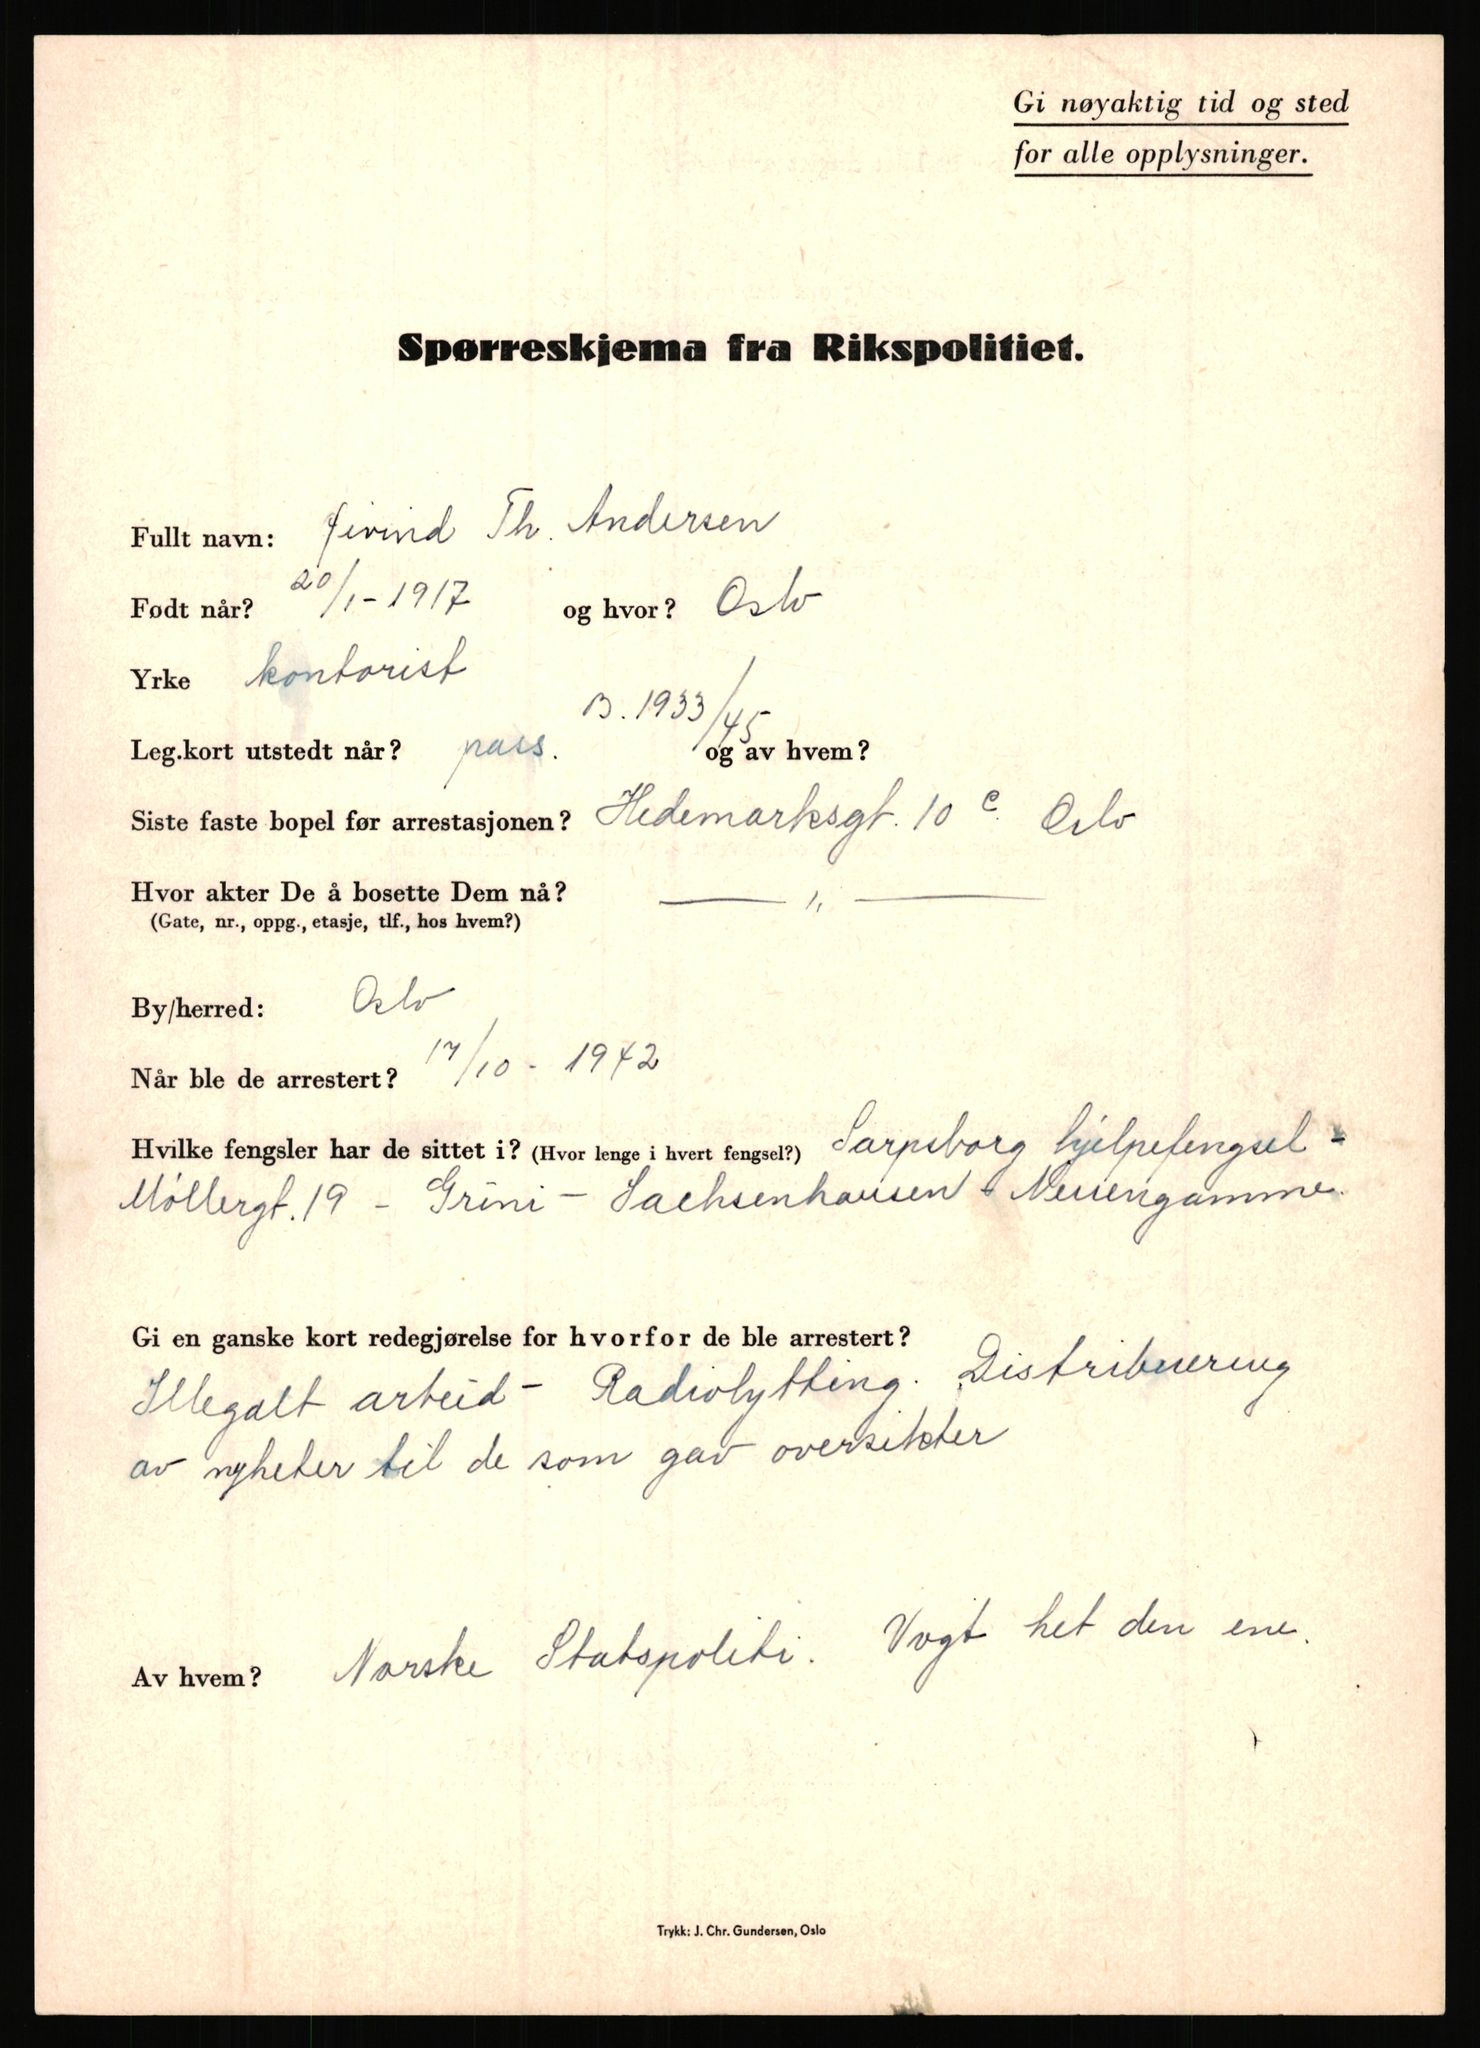 Gi nøyaktig tid og sted
for alle opplysninger.
Spørreskjema fra Rikspolitiet.
Fullt navn: Øivind Th. Andersen
Født når? 20/1-1917 og hvor? Oslo
Yrke kontorist
B. 1933/45
Leg.kort utstedt når? pass. og av hvem?
Siste faste bopel før arrestasjonen? Hedemarksgt. 10 c Oslo
Hvor akter De å bosette Dem nå? — " —
(Gate, nr., oppg., etasje, tlf., hos hvem?)
By/herred: Oslo
Når ble de arrestert? 17/10 - 1942
Hvilke fengsler har de sittet i? (Hvor lenge i hvert fengsel?) Sarpsborg hjelpefengsel -
Møllergt. 19 - Grini - Sachsenhausen - Neuengamme.
Gi en ganske kort redegjørelse for hvorfor de ble arrestert?
Illegalt arbeid - Radiolytting. Distribuering
av nyheter til de som gav oversikter
Av hvem? Norske Statspoliti. Vogt het den ene.
Trykk: J. Chr. Gundersen, Oslo